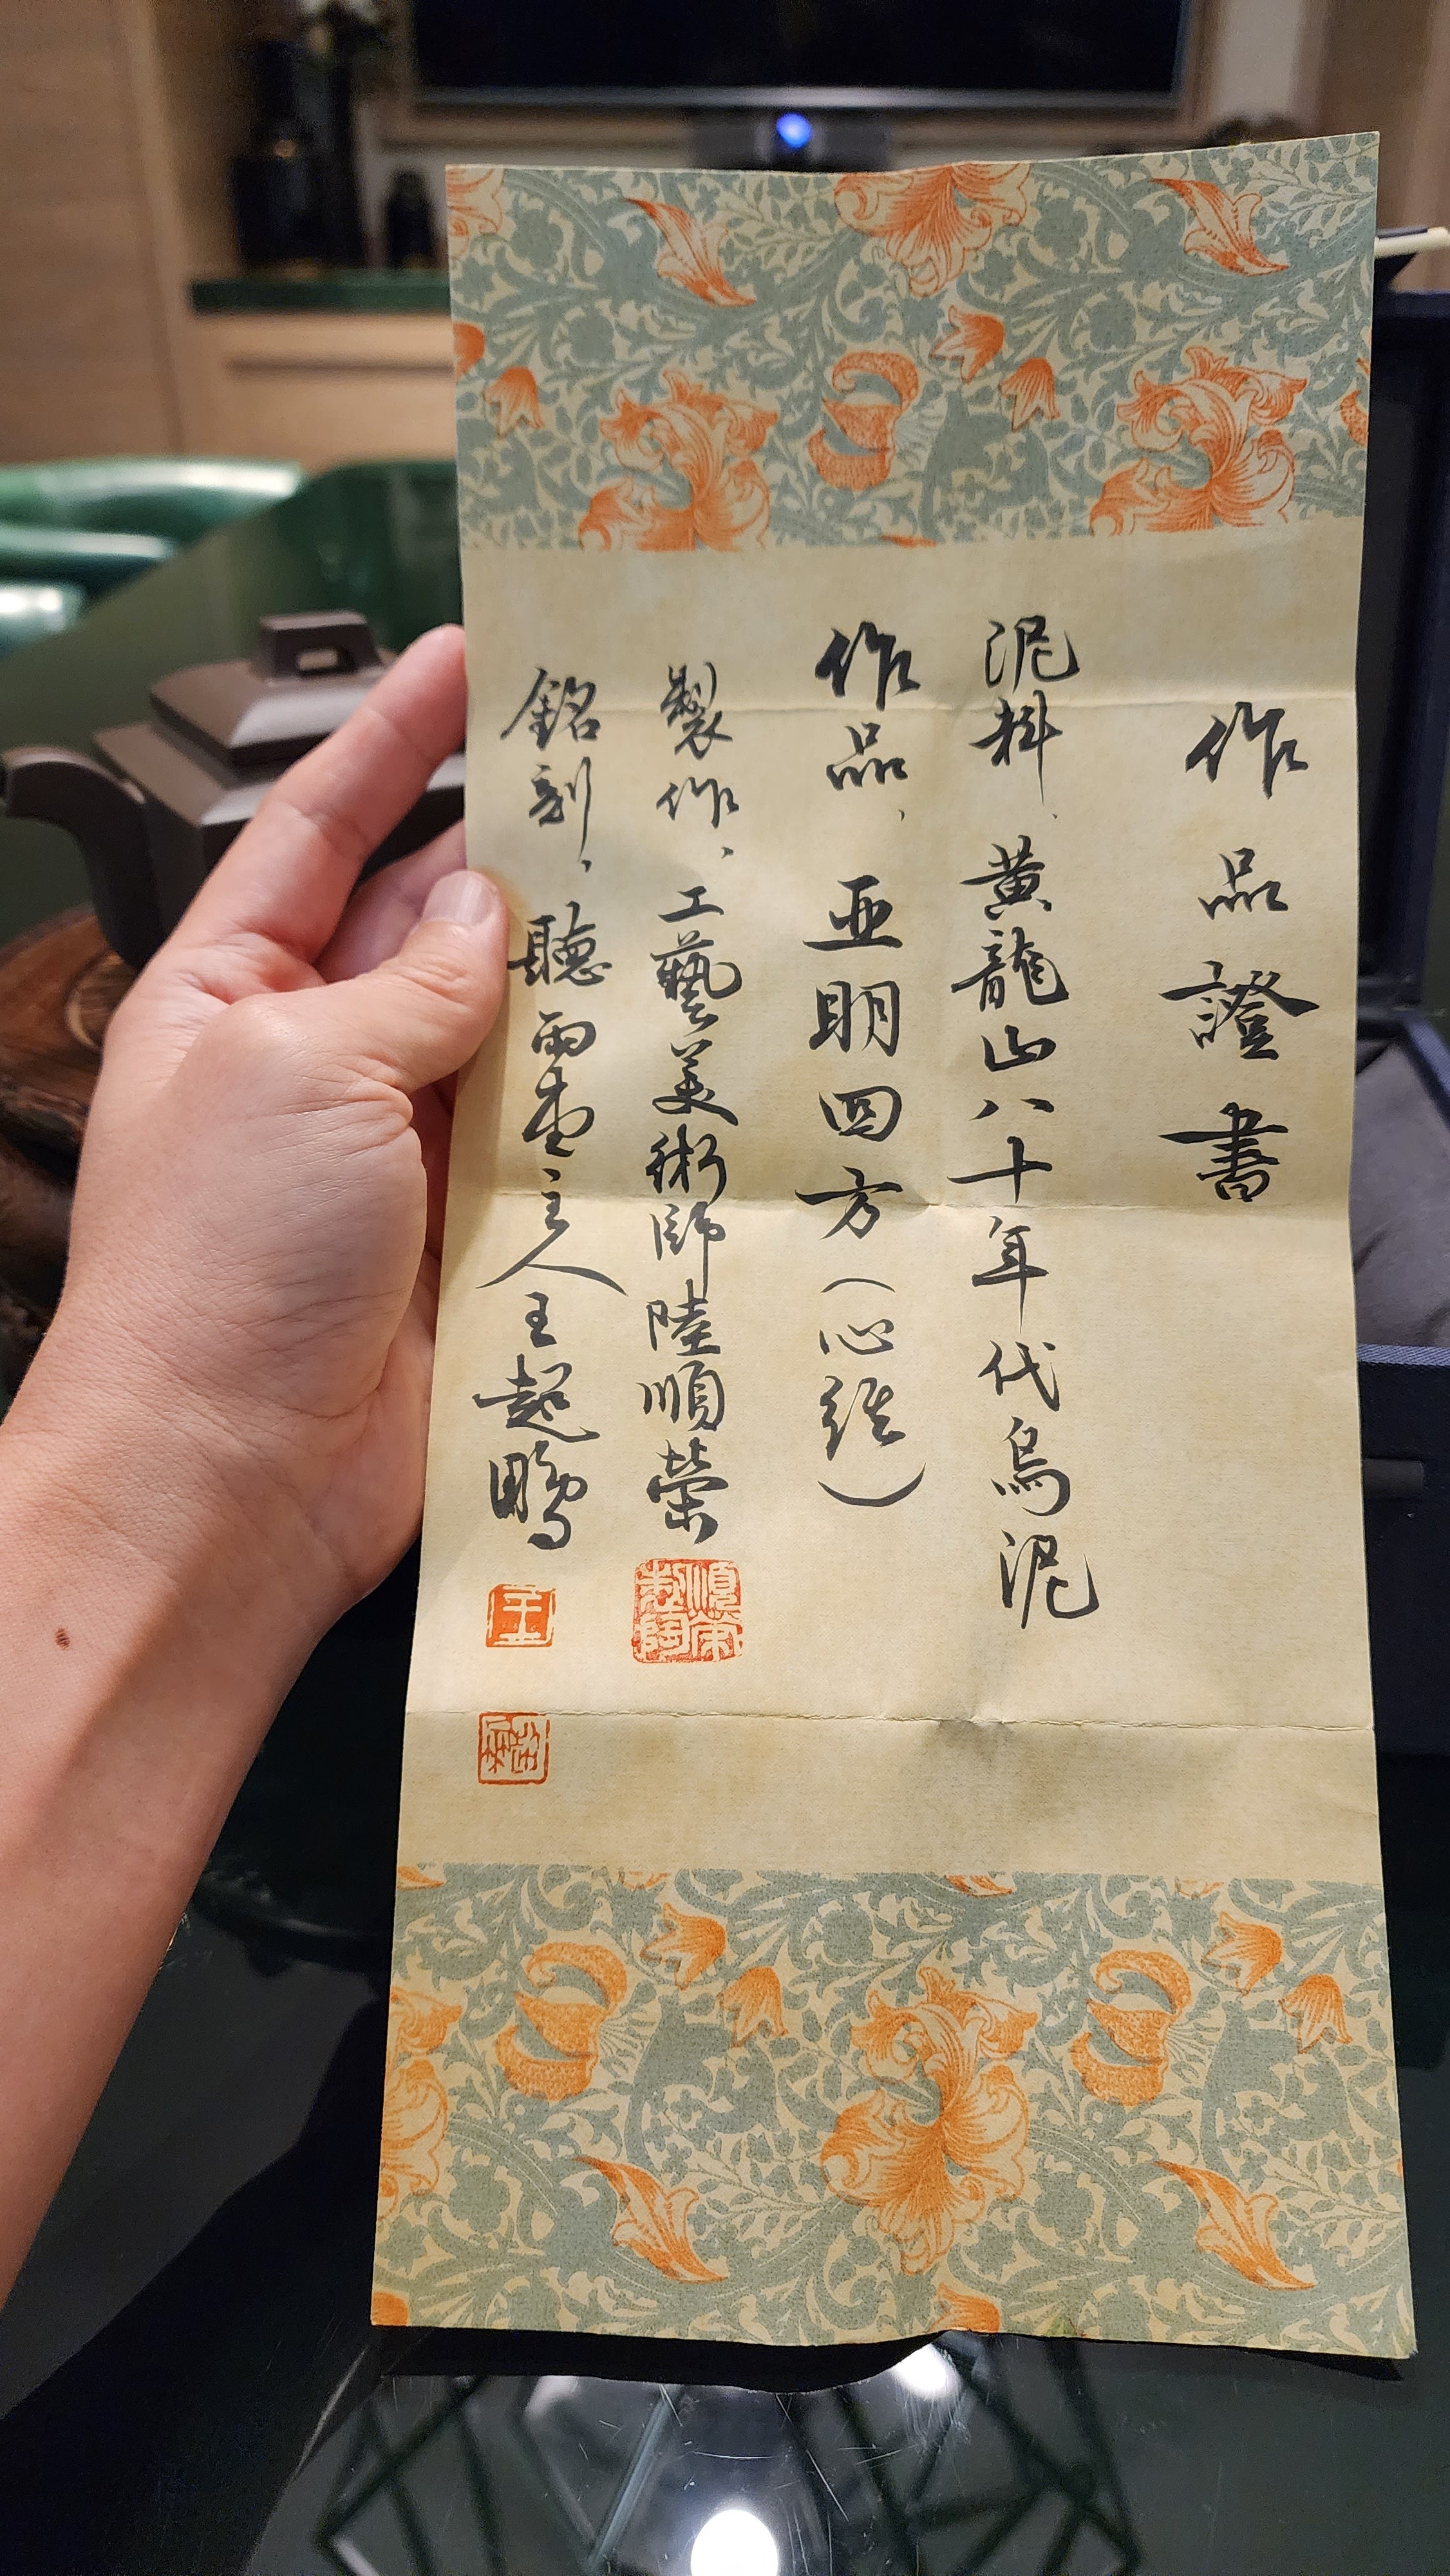 作品證書
泥料、黃龍山八十年代烏泥
作品、亞明四方（心經）
製作、工藝美術師陸順榮
銘刻、聽雨堂主人王起鵬
順榮製陶
王